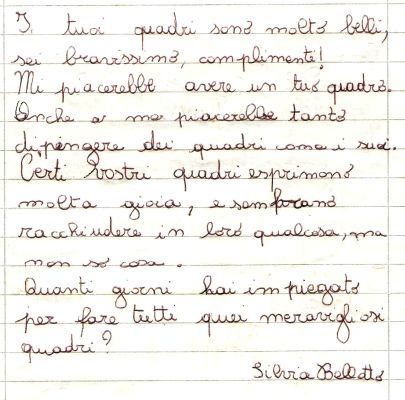 I tuoi quadri sono molto belli,
sei bravissimo, complimenti!
Mi piacerebbe avere un tuo quadro.
Anche a me piacerebbe tanto
dipingere dei quadri come i suoi.
Certi vostri quadri esprimono
molta gioia, e sembrano
racchiudere in loro qualcosa, ma
non so cosa.
Quanti giorni hai impiegato
per fare tutti quei meravigliosi
quadri?
Silvia Bellotto